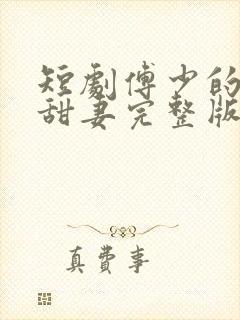 短劇傅少的
甜妻完整版
真費事